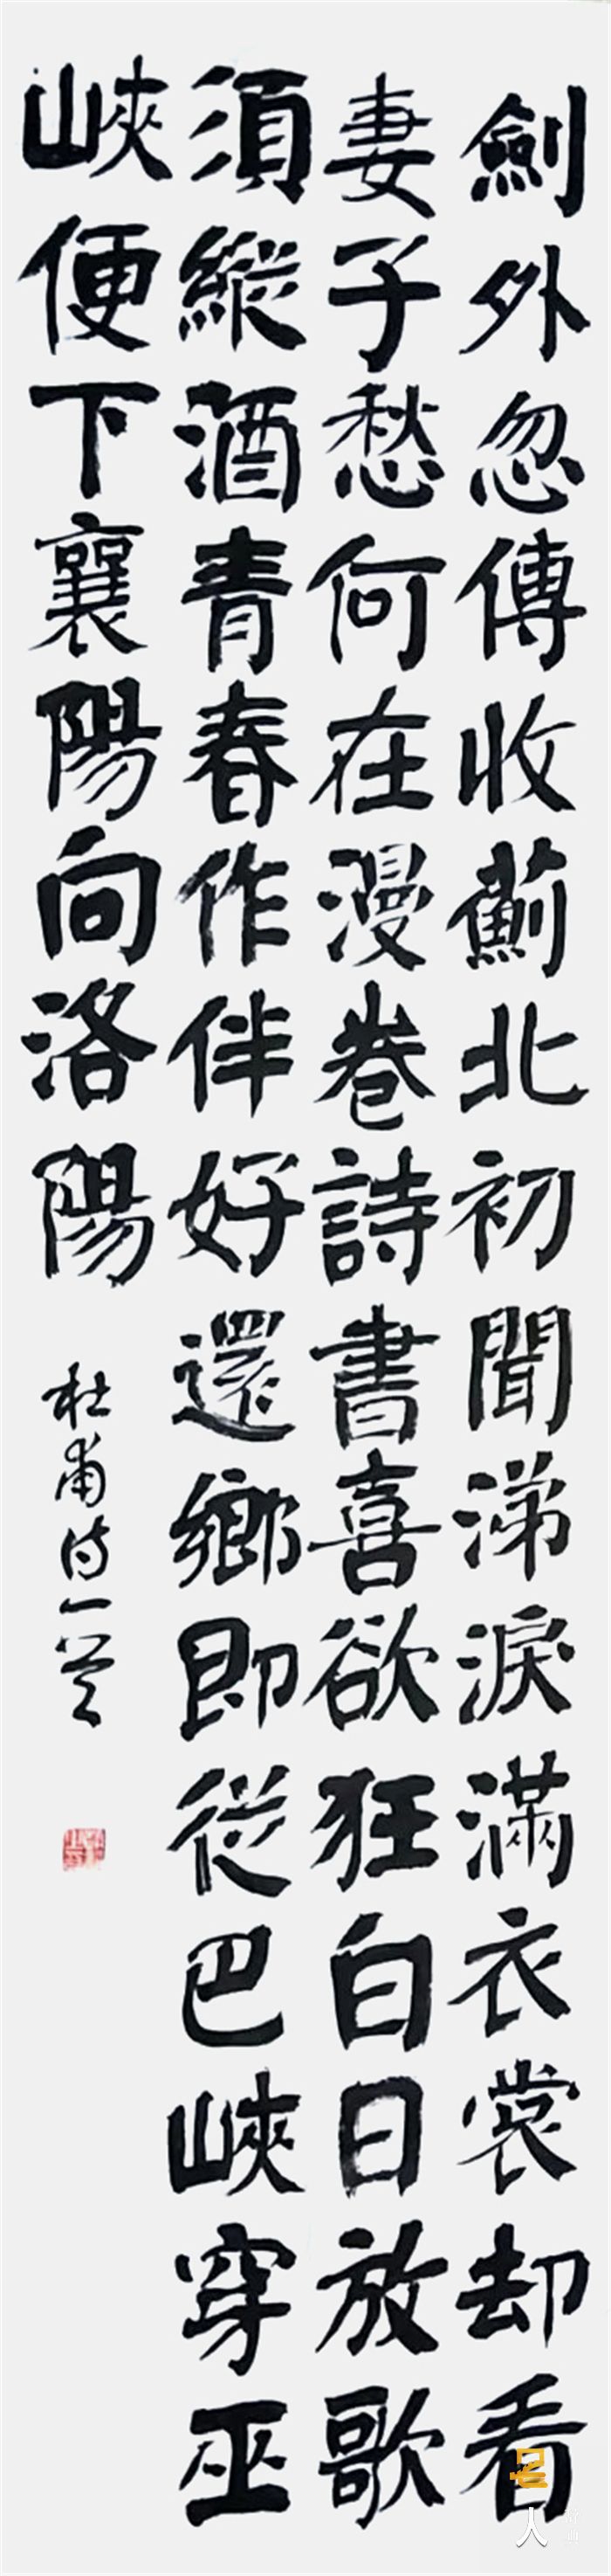 劍外忽傳收薊北初聞涕淚滿衣裳却看
妻子愁何在漫卷詩書喜欲狂白日放歌
須縱酒青春作伴好還鄉即從巴峽穿巫
峽便下襄陽向洛陽
杜甫诗一首
名人